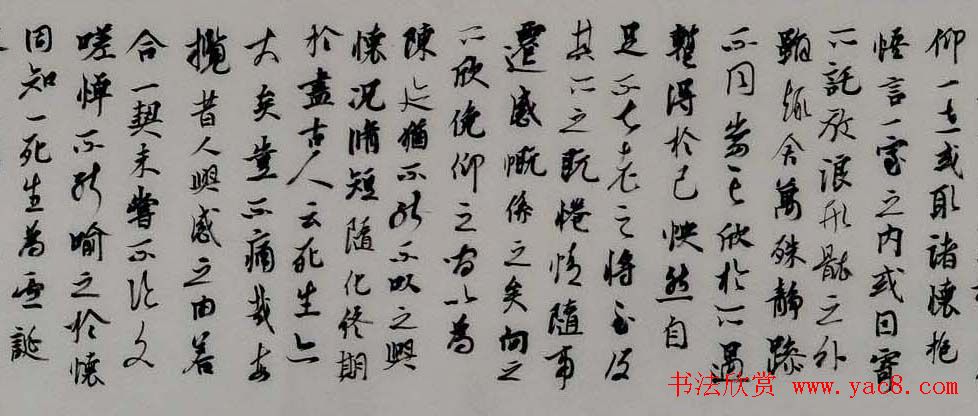 仰一世或取諸懷抱
悟言一室之內或因寄
所託放浪形骸之外
雖趣舍萬殊靜躁
不同當其欣於所遇
暫得於己怏然自
足不知老之將至及
其所之既惓情隨事
遷感慨係之矣向之
所欣俛仰之間以為
陳迹猶不能不以之興
懷況脩短隨化終期
於盡古人云死生亦
大矣豈不痛哉每
攬昔人興感之由若
合一契未嘗不臨文
嗟悼不能喻之於懷
固知一死生為虛誕
书法欣赏 www.yac8.com